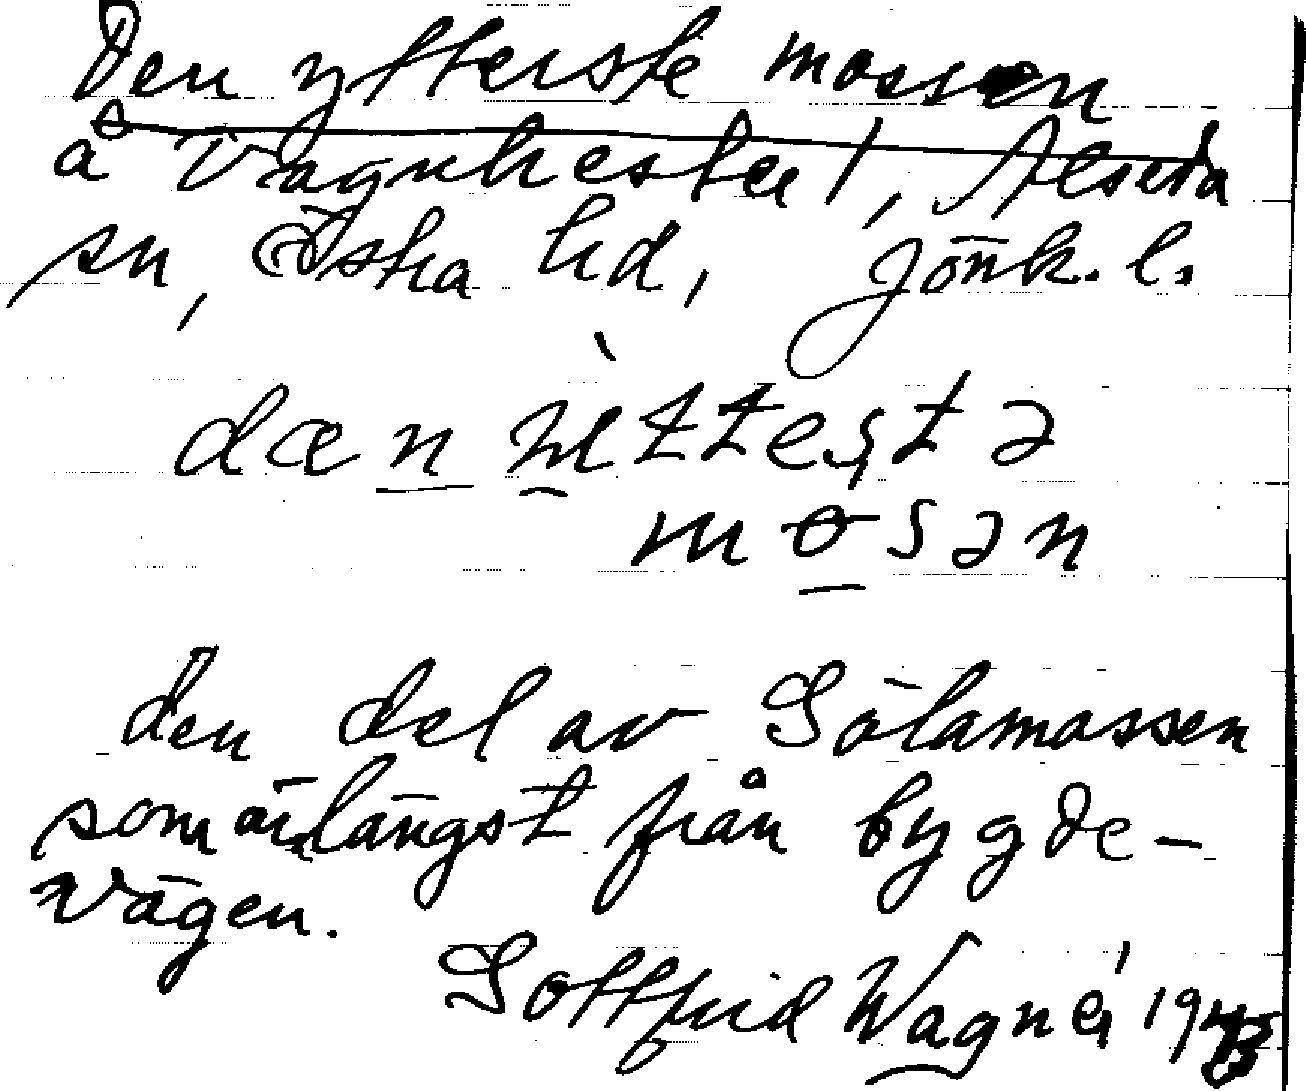 Den ytterste mossen
å Vagnhester!, Alseda
sn, Östra hd, Jönk. l.
dæn ìttestə
mɵsən
den del av Gölamossen
som är längst från bygde-
vägen.
Gottfrid Wagnér 1945